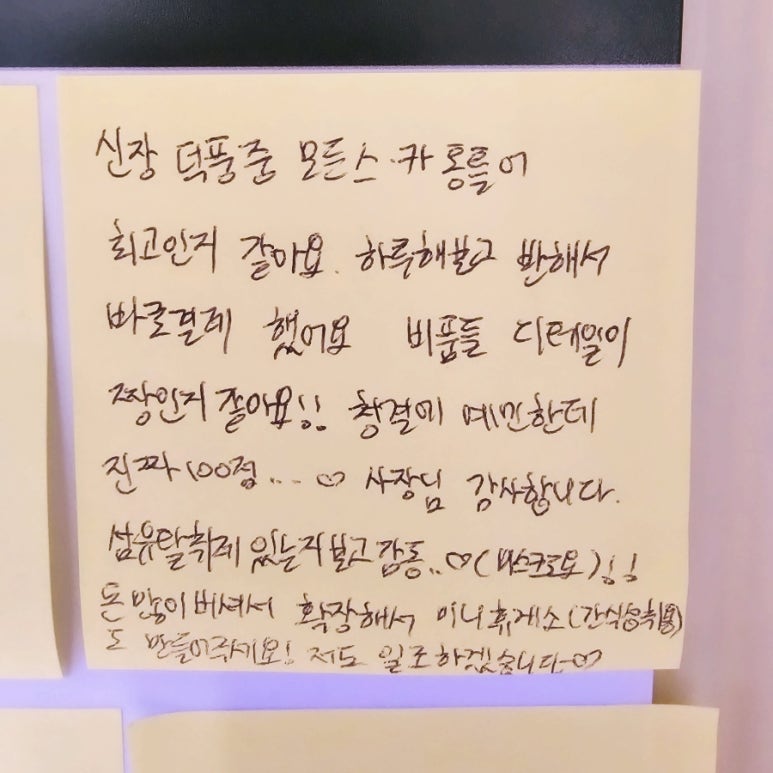 신장 덕풍중 모든스.카 통틀어
최고인지 같아요. 하루해보고 반해서
바로결제 했어요 비품들 디테일이
짱인지 좋아요!! 청결에 예민한데
진짜 100점... ♡ 사장님 감사합니다.
섬유탈취제 있는지보고 감동..♡(마스크로요)!!
돈 많이버셔서 확장해서 미니휴게소(간식섭취용)
도 만들어주세요! 저도 일조하겠습니다-♡